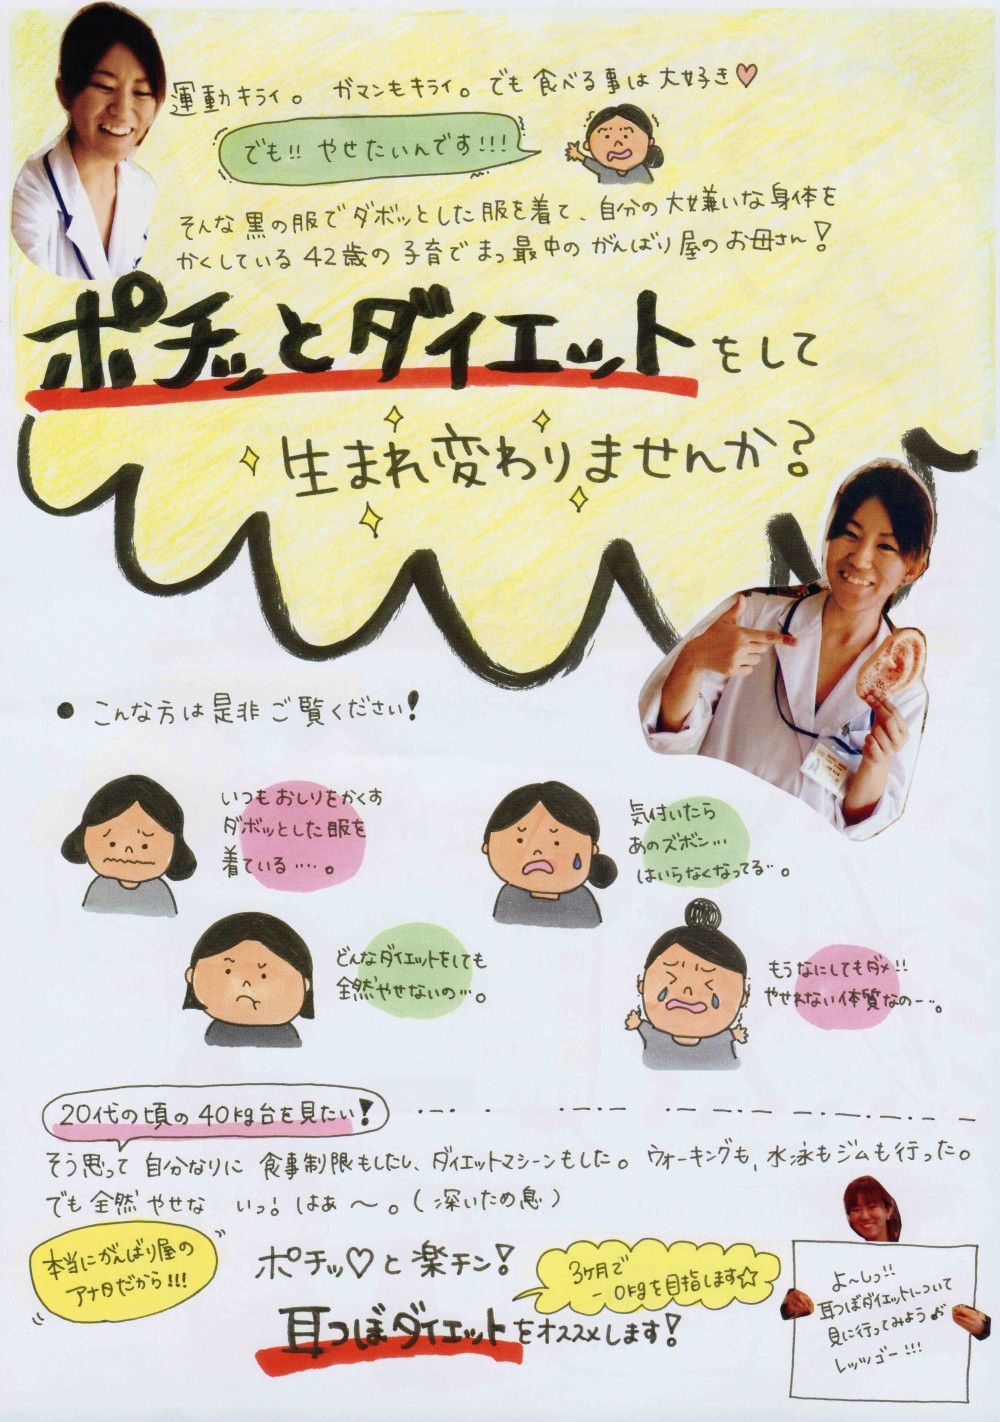 運動キライ。 ガマンもキライ。でも 食べる事は 大好き♡
でも!! やせたいんです!!!
そんな 黒の服で ダボッとした 服を着て、自分の 大嫌いな 身体を
かくしている 42歳の 子育てまっ最中の がんばり屋の お母さん!
ポチッとダイエットをして
生まれ変わりませんか?
● こんな方は 是非 ご覧ください!
いつも おしりをかくす
ダボッとした服を
着ている‥‥。
気付いたら
あのズボン…
はいらなくなってる…。
どんなダイエットをしても
全然やせないの…。
もうなにしてもダメ!!
やせれない体質なの…。
20代の頃の 40kg台を見たい!
そう思って 自分なりに 食事制限もしたし、ダイエットマシーンもした。 ウォーキングも、水泳もジムも行った。
でも 全然 やせな いっ! はぁ〜。(深いため息)
本当にがんばり屋の
アナタだから!!!
ポチッ♡と 楽チン!
3ヶ月で
-10kgを目指します☆
耳つぼダイエットをオススメします!
よ〜しっ!!
耳つぼダイエットについて
見に行ってみよう♪
レッツゴー!!!